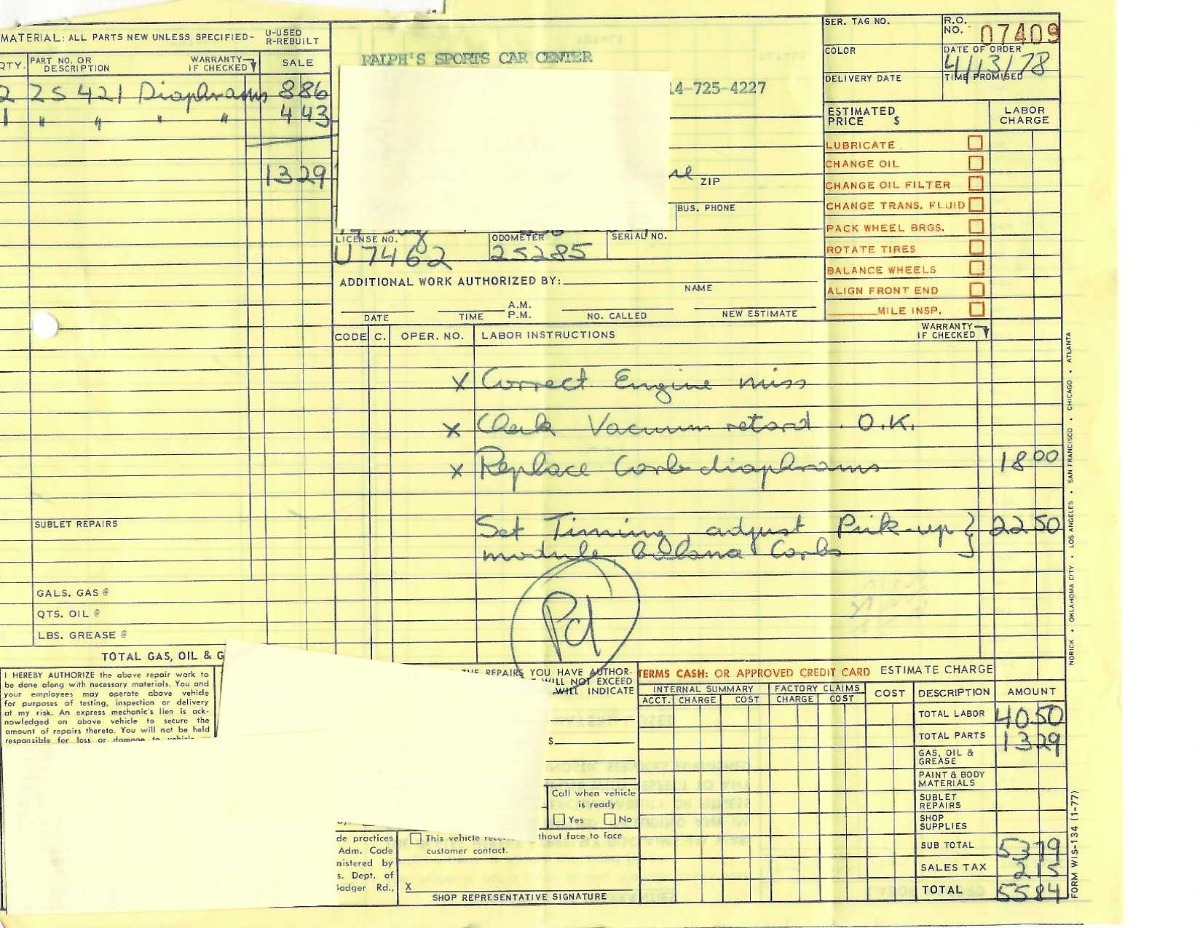 MATERIAL: ALL PARTS NEW UNLESS SPECIFIED- U-USED R-REBUILT
QTY. PART NO. OR DESCRIPTION WARRANTY IF CHECKED SALE
2 ZS 421 Diaphrams 886
1 " " " " 443
1329
SUBLET REPAIRS
GALS. GAS @
QTS. OIL @
LBS. GREASE @
TOTAL GAS, OIL & G
RALPH'S SPORTS CAR CENTER
14-725-4227
ZIP
BUS. PHONE
LICENSE NO. ODOMETER SERIAL NO.
U7462 25285
ADDITIONAL WORK AUTHORIZED BY:
NAME
A.M.
DATE TIME P.M. NO. CALLED NEW ESTIMATE
SER. TAG NO. R.O. NO. 07409
COLOR DATE OF ORDER
4/13/78
DELIVERY DATE TIME PROMISED
ESTIMATED PRICE $ LABOR CHARGE
LUBRICATE
CHANGE OIL
CHANGE OIL FILTER
CHANGE TRANS. FLUID
PACK WHEEL BRGS.
ROTATE TIRES
BALANCE WHEELS
ALIGN FRONT END
MILE INSP.
CODE C. OPER. NO. LABOR INSTRUCTIONS WARRANTY IF CHECKED
x Correct Engine miss
x Check Vacuum retard . O.K.
x Replace Carb diaphrams 18 00
Set Timing, adjust Pick-up } 22 50
module balance Carbs
Pd
I HEREBY AUTHORIZE the above repair work to
be done along with necessary materials. You and
your employees may operate above vehicle
for purposes of testing, inspection or delivery
at my risk. An express mechanic's lien is ack-
nowledged on above vehicle to secure the
amount of repairs thereto. You will not be held
responsible for loss or damage to vehicle
THE REPAIRS YOU HAVE AUTHOR-
WILL NOT EXCEED
WILL INDICATE
$
Call when vehicle is ready
Yes No
de practices
Adm. Code
nistered by
s. Dept. of
Badger Rd.,
This vehicle rece thout face to face
customer contact.
X
SHOP REPRESENTATIVE SIGNATURE
TERMS CASH: OR APPROVED CREDIT CARD ESTIMATE CHARGE
INTERNAL SUMMARY FACTORY CLAIMS COST DESCRIPTION AMOUNT
ACCT. CHARGE COST CHARGE COST
TOTAL LABOR 40 50
TOTAL PARTS 13 29
GAS, OIL & GREASE
PAINT & BODY MATERIALS
SUBLET REPAIRS
SHOP SUPPLIES
SUB TOTAL 53 79
SALES TAX 2 15
TOTAL 55 84
NORICK • OKLAHOMA CITY • LOS ANGELES • SAN FRANCISCO • CHICAGO • ATLANTA
FORM WIS-134 (1-77)